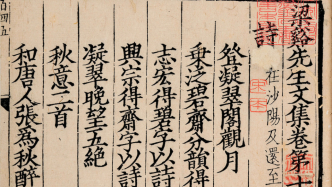 梁谿先生文集卷第十
詩
在沙陽及還至
登凝翠閣觀月
乗泛碧齋分韻得
志宏得碧字以詩
興宗得齋字以詩
凝翠晚望五絶
秋意二首
和唐人張為秋醉
四五